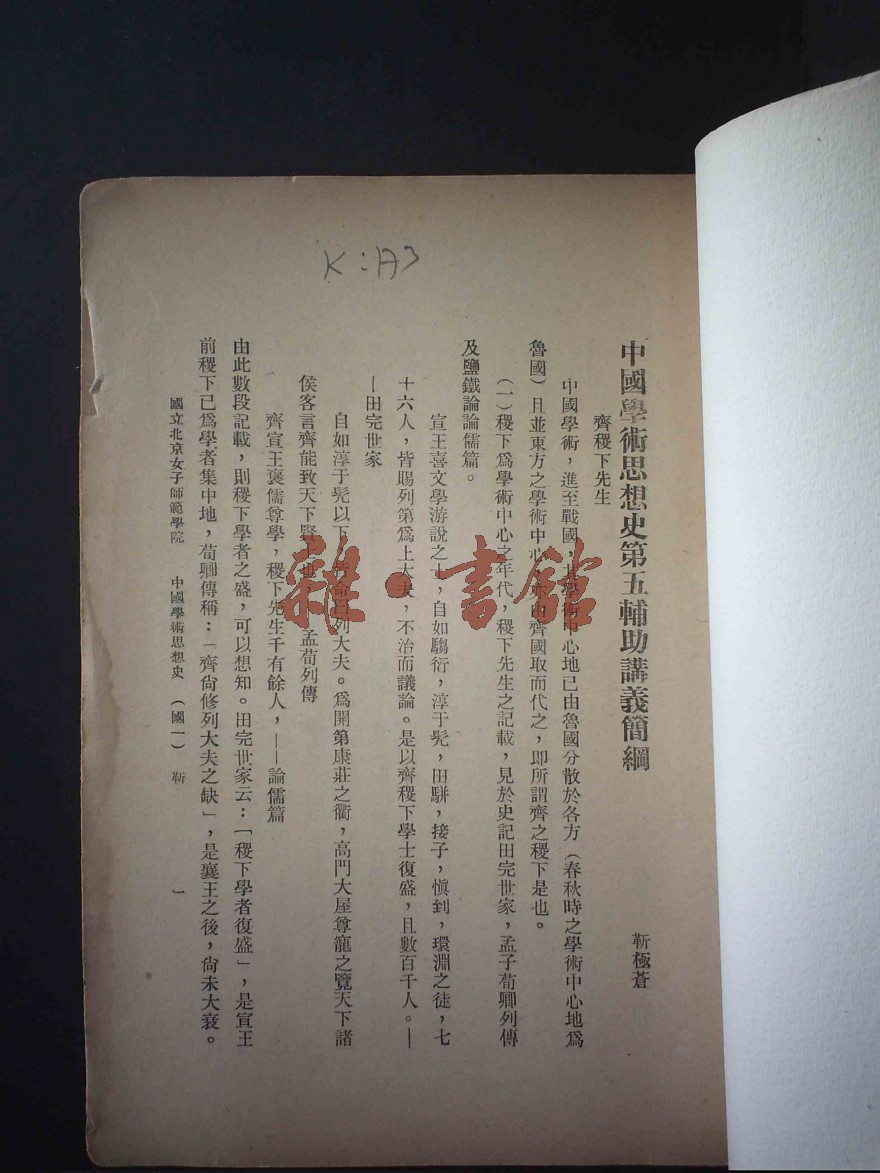 K:A3
中國學術思想史第五輔助講義簡綱
靳極蒼
齊稷下先生
中國學術，進至戰國，其學術中心地已由魯國分散於各方（春秋時之學術中心地爲
魯國）且並東方之學術中心，亦由齊國取而代之，即所謂齊之稷下是也。
（一）稷下爲學術中心之年代，稷下先生之記載，見於史記田完世家，孟子荀卿列傳
及鹽鐵論論儒篇。
宣王喜文學游說之士，自如騶衍，淳于髡，田駢，接子，愼到，環淵之徒，七
十六人，皆賜列第爲上大夫，不治而議論。是以齊稷下學士復盛，且數百千人。—
—田完世家
自如淳于髡以下，皆命曰列大夫。爲開第康莊之衢，高門大屋尊寵之覽天下諸
侯客言齊能致天下賢士也 孟荀列傳
齊宣王褒儒尊學，稷下先生千有餘人，——論儒篇
由此數段記載，則稷下學者之盛，可以想知。田完世家云：「稷下學者復盛」，是宣王
前稷下已爲學者集中地，荀卿傳稱：「齊尙修列大夫之缺」，是襄王之後，尙未大衰。
國立北京女子師範學院 中國學術思想史 （國一） 靳 一
雜·書館